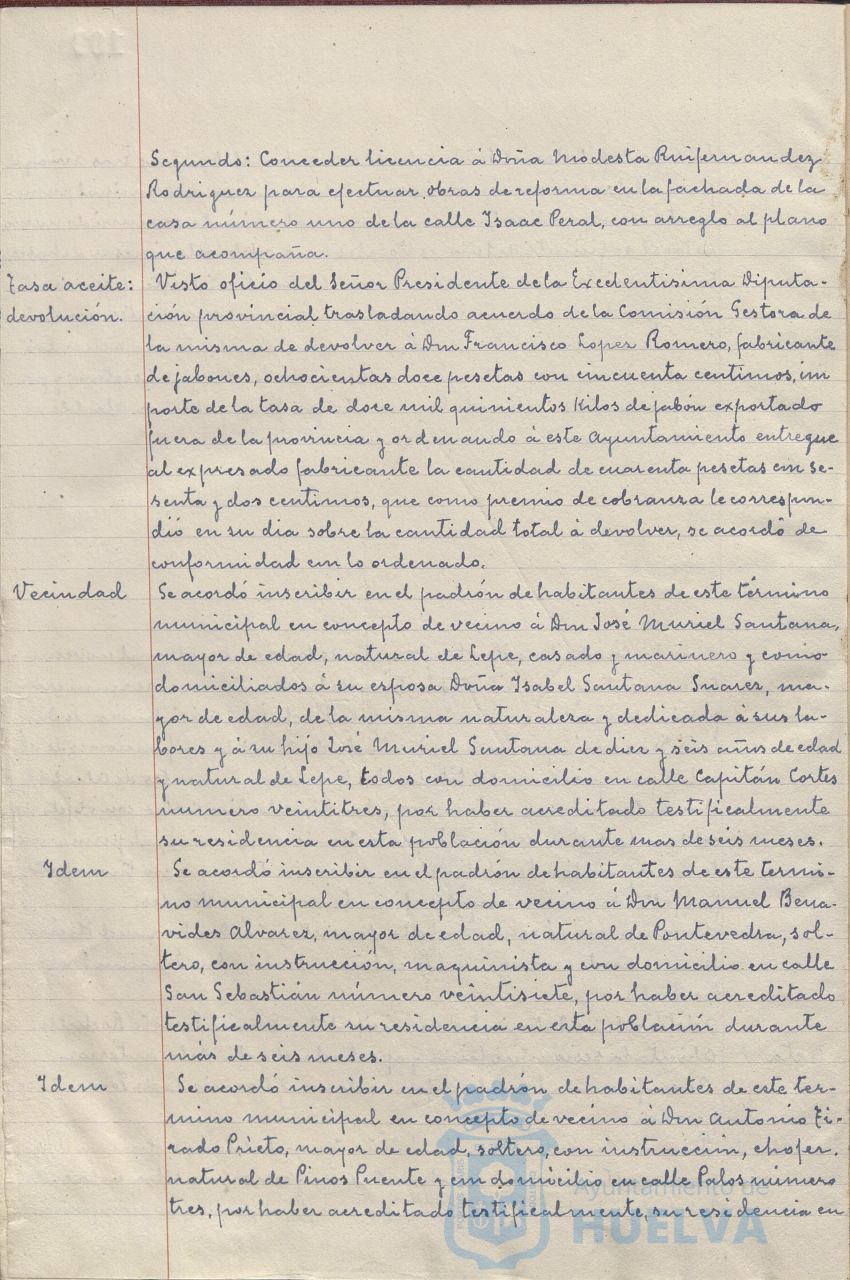 Segundo: Conceder licencia á Doña Modesta Ruifernandez
Rodriguez para efectuar obras de reforma en la fachada de la
casa número uno de la calle Isaac Peral, con arreglo al plano
que acompaña.
Tasa aceite:
devolución.
Visto oficio del Señor Presidente de la Excedentisima Diputa-
ción provincial trasladando acuerdo de la Comisión Gestora de
la misma de devolver á Don Francisco Lopez Romero, fabricante
de jabones, ochocientas doce pesetas con cincuenta centimos, im
porte de la tasa de doce mil quinientos Kilos de jabón exportado
fuera de la provincia y ordenando á este Ayuntamiento entregue
al expresado fabricante la cantidad de cuarenta pesetas con se-
senta y dos centimos, que como premio de cobranza le correspon-
dió en su dia sobre la cantidad total á devolver, se acordó de
conformidad con lo ordenado.
Vecindad
Se acordó inscribir en el padrón de habitantes de este término
municipal en concepto de vecino á Don José Muriel Santana,
mayor de edad, natural de Lepe, casado y marinero y como
domiciliados á su esposa Doña Isabel Santana Suarez, ma-
yor de edad, de la misma naturaleza y dedicada á sus la-
bores y á su hijo José Muriel Santana de diez y seis años de edad
y natural de Lepe, todos con domicilio en calle Capitán Cortes
numero veintitres, por haber acreditado testificalmente
su residencia en esta población durante mas de seis meses.
Idem
Se acordó inscribir en el padrón de habitantes de este termi-
no municipal en concepto de vecino á Don Manuel Bena-
vides Alvarez, mayor de edad, natural de Pontevedra, sol-
tero, con instrucción, maquinista y con domicilio en calle
San Sebastián número veintisiete, por haber acreditado
testificalmente su residencia en esta población durante
más de seis meses.
Idem
Se acordó inscribir en el padrón de habitantes de este ter-
mino municipal en concepto de vecino á Don Antonio Ti-
rado Prieto, mayor de edad, soltero, con instrucción, chofer.
natural de Pinos Puente y con domicilio en calle Palos número
tres, por haber acreditado testificalmente, su residencia en
Ayuntamiento de
HUELVA